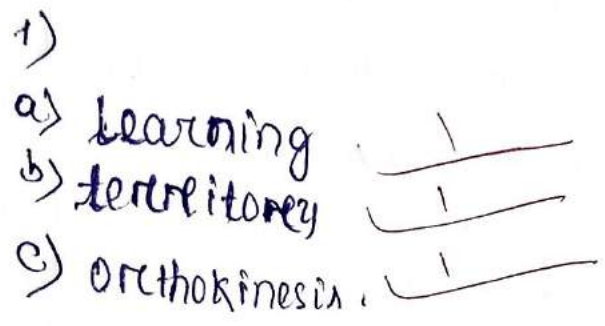 1)
a) Learning 1
b) territorey 1
c) orthokinesis. 1